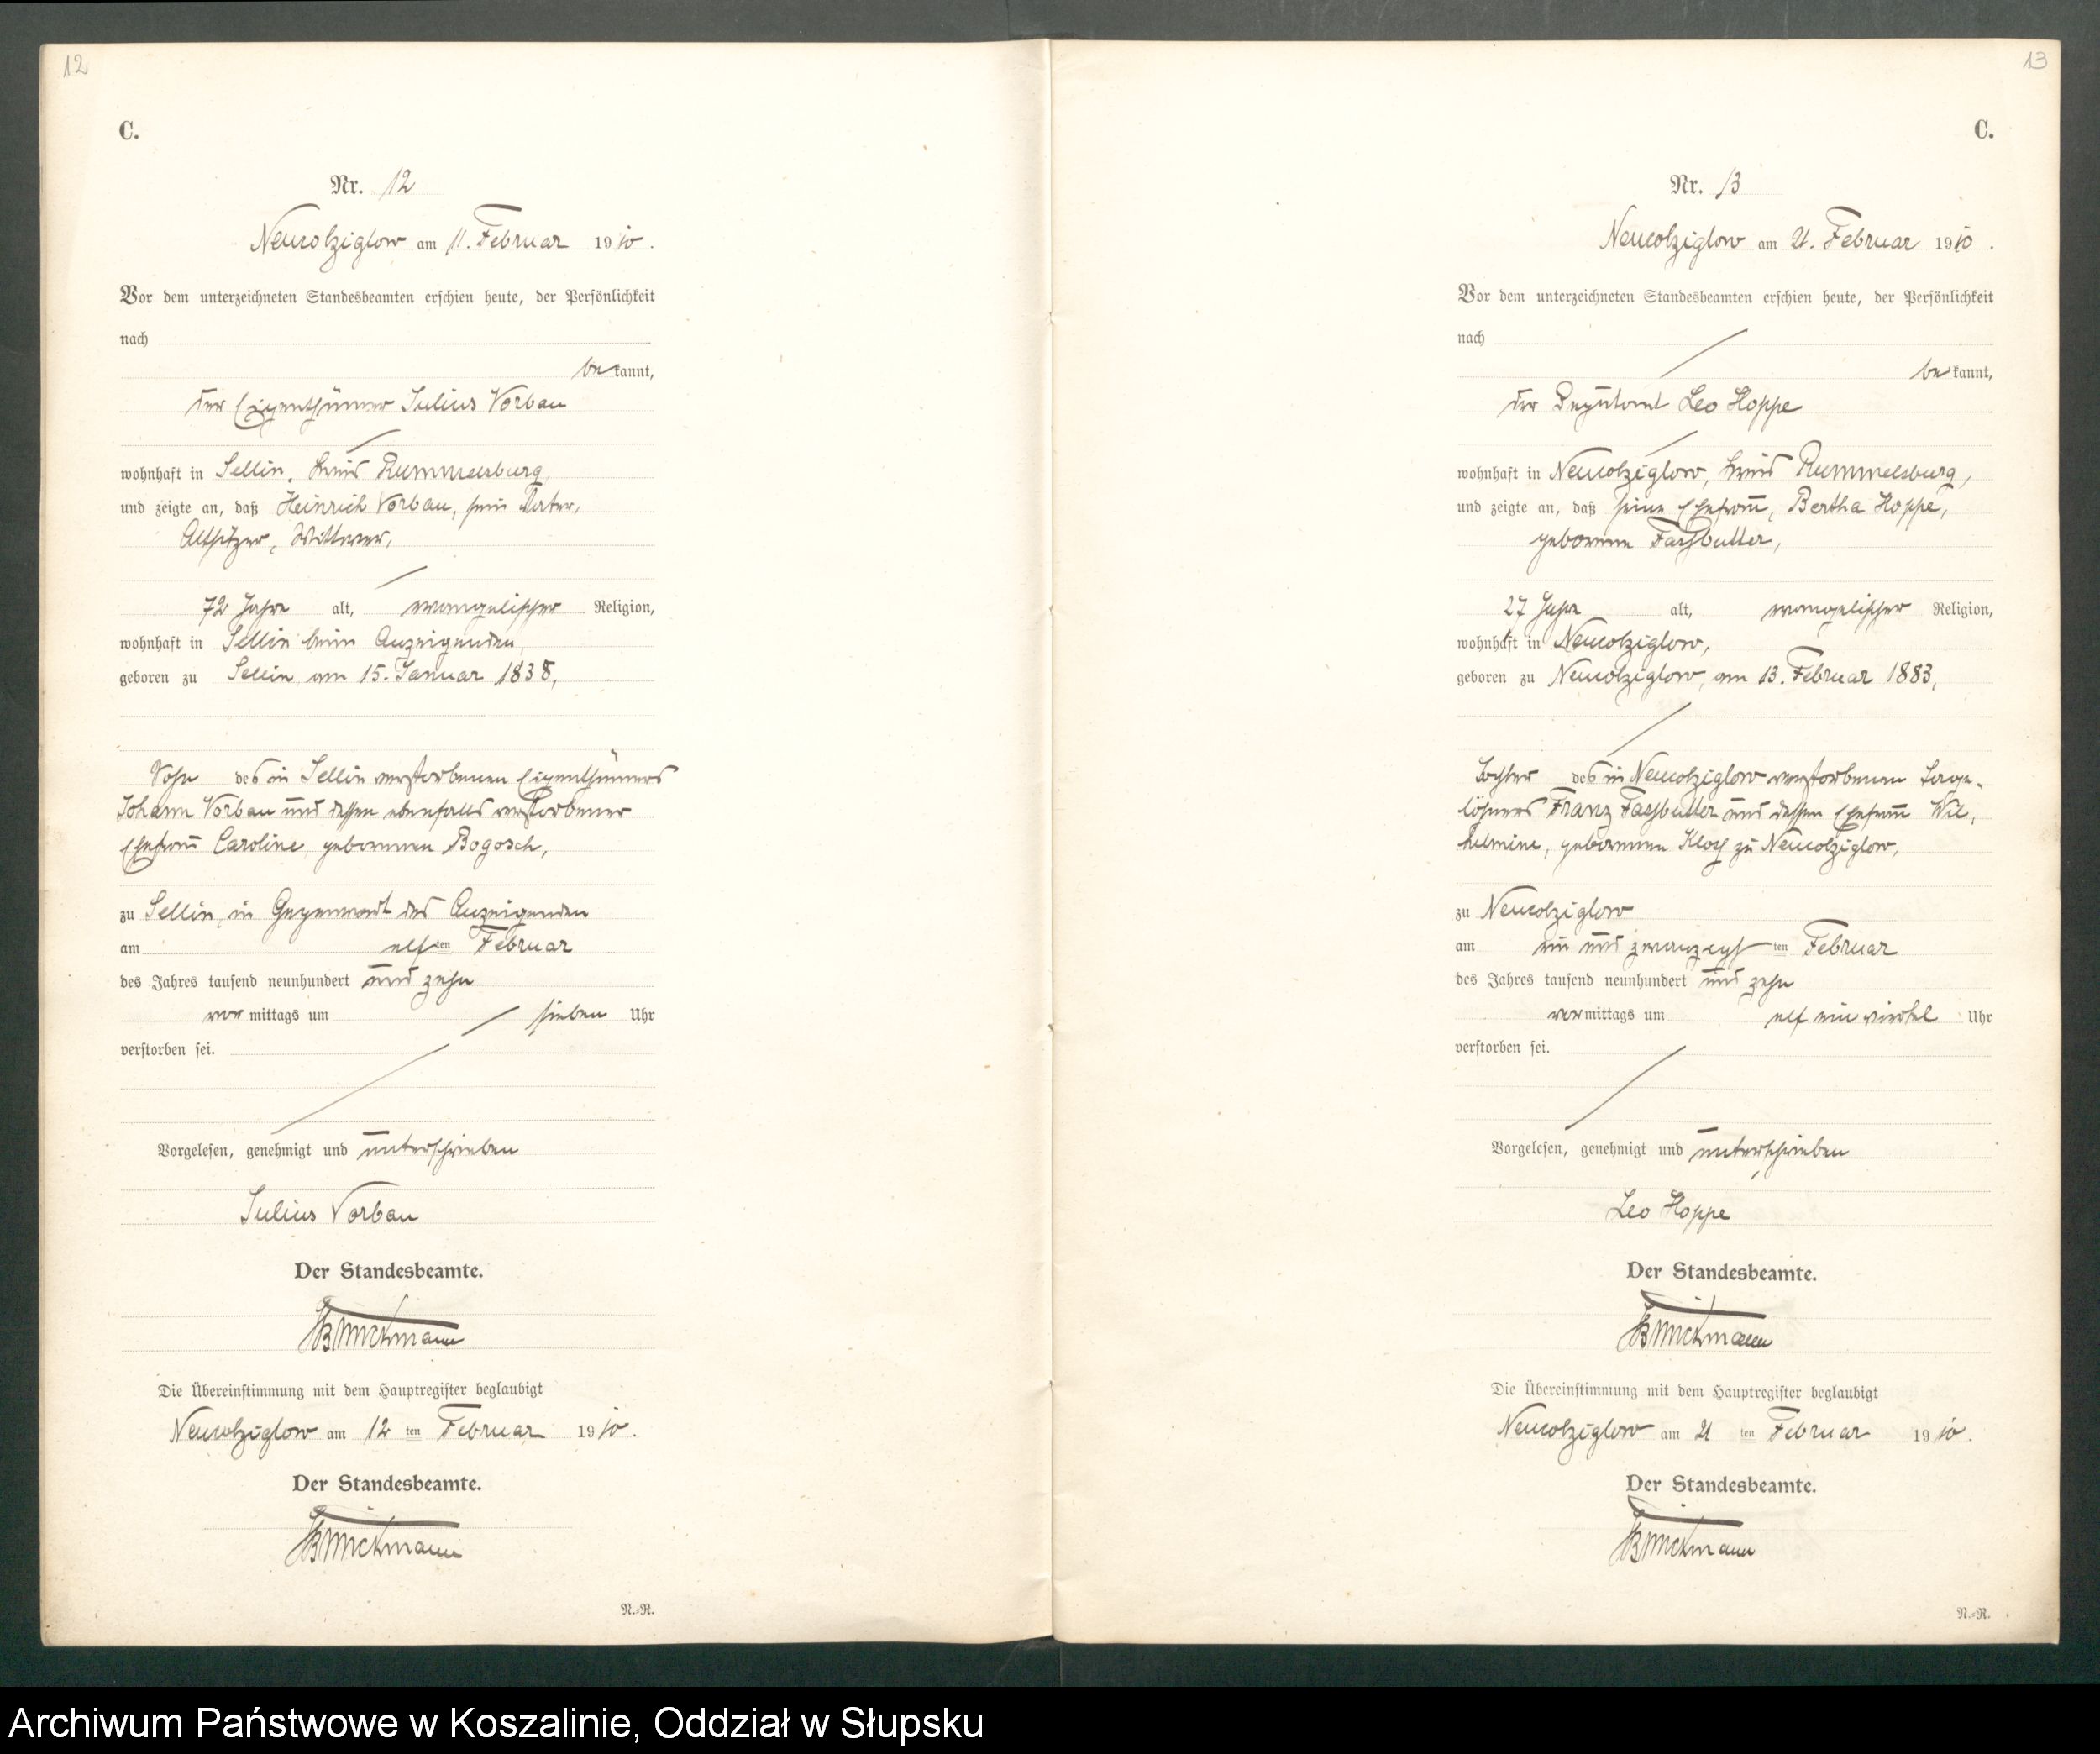 12
C.
Nr. 12
Neukolziglow am 11. Februar 1910.
Vor dem unterzeichneten Standesbeamten erschien heute, der Persönlichkeit
nach
bekannt,
der Eigenthümer Julius Vorbau
wohnhaft in Sellin, Kreis Rummelsburg,
und zeigte an, daß Heinrich Vorbau, sein Vater,
Altsitzer, Wittwer,
72 Jahre alt, evangelischer Religion,
wohnhaft in Sellin beim Anzeigenden,
geboren zu Sellin am 15. Januar 1838,
Sohn des in Sellin verstorbenen Eigenthümers
Johann Vorbau und dessen ebenfalls verstorbener
Ehefrau Caroline, geborenen Bogosch,
zu Sellin, in Gegenwart des Anzeigenden
am elften Februar
des Jahres tausend neunhundert und zehn
vormittags um sieben Uhr
verstorben sei.
Vorgelesen, genehmigt und unterschrieben
Julius Vorbau
Der Standesbeamte.
Die Übereinstimmung mit dem Hauptregister beglaubigt
Neukolziglow am 12 ten Februar 1910.
Der Standesbeamte.
N.=R.
13
C.
Nr. 13
Neukolziglow am 21. Februar 1910.
Vor dem unterzeichneten Standesbeamten erschien heute, der Persönlichkeit
nach
bekannt,
der Deputant Leo Hoppe
wohnhaft in Neukolziglow, Kreis Rummelsburg,
und zeigte an, daß seine Ehefrau, Bertha Hoppe,
geborene Faßbutter,
27 Jahre alt, evangelischer Religion,
wohnhaft in Neukolziglow,
geboren zu Neukolziglow, am 13. Februar 1883,
Tochter des in Neukolziglow verstorbenen Tage-
löhners Franz Faßbutter und dessen Ehefrau Wil-
helmine, geborenen Kloß zu Neukolziglow,
zu Neukolziglow
am ein und zwanzigsten Februar
des Jahres tausend neunhundert und zehn
vormittags um elf ein viertel Uhr
verstorben sei.
Vorgelesen, genehmigt und unterschrieben
Leo Hoppe
Der Standesbeamte.
Die Übereinstimmung mit dem Hauptregister beglaubigt
Neukolziglow am 21 ten Februar 1910.
Der Standesbeamte.
N.=R.
Archiwum Państwowe w Koszalinie, Oddział w Słupsku